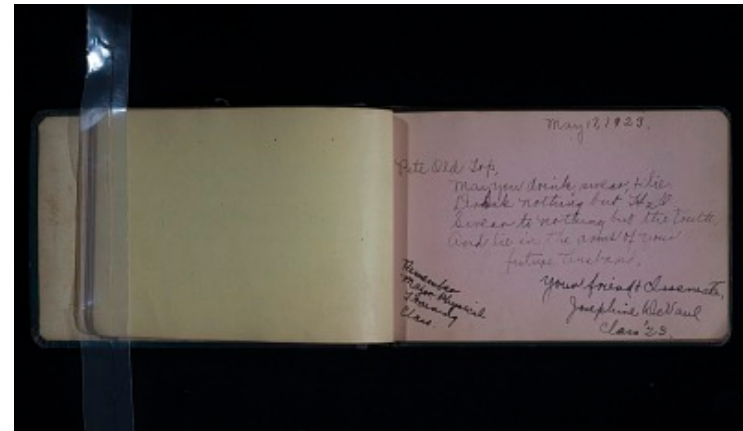 May 18, 1923.
Pete Old Top,
May you drink, swear, & lie.
Drink nothing but H2O
Swear to nothing but the truth
And lie in the arms of your
future husband.
Your friend & Classmate,
Josephine DeVaul
Class '23.
Remember
Major Physical
Training
Class.